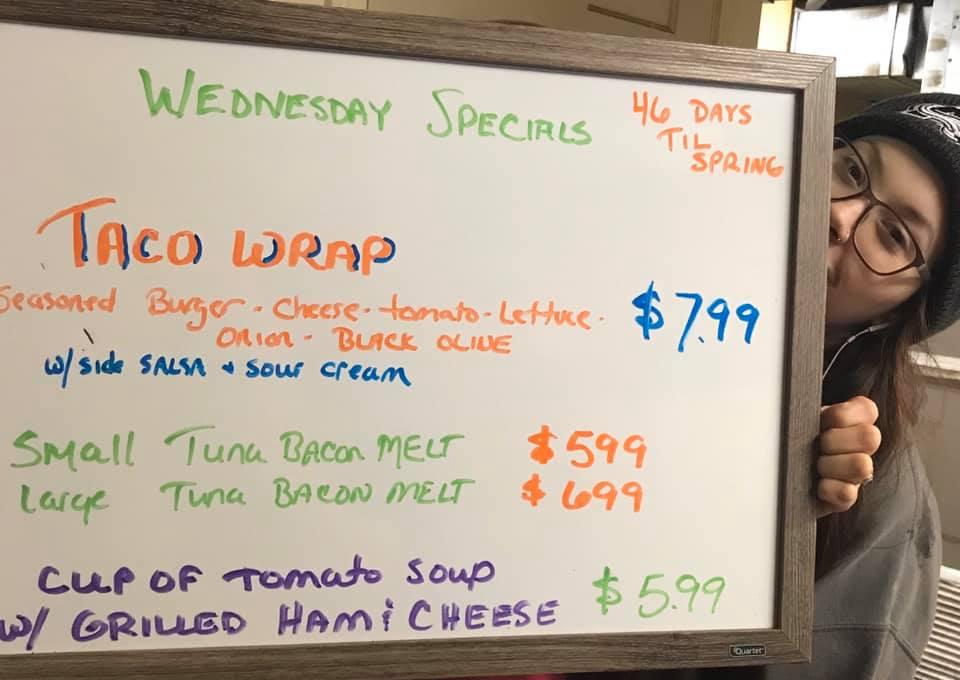 WEDNESDAY SPECIALS
46 DAYS
TIL
SPRING
TACO WRAP
Seasoned Burger - Cheese - tomato - Lettuce -
ONION - BLACK OLIVE
$7.99
w/ side SALSA + sour cream
Small Tuna BACON MELT $599
Large Tuna BACON MELT $699
CUP OF Tomato Soup
W/ GRILLED HAM & CHEESE
$5.99
Quartet